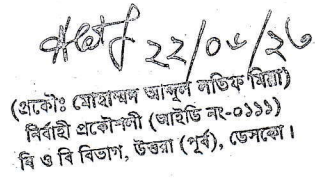 ২২/০৮/২৩
(প্রকৌঃ মোহাম্মদ আব্দুল লতিফ মিয়া)
নির্বাহী প্রকৌশলী (আইডি নং-০১১১)
বি ও বি বিভাগ, উত্তরা (পূর্ব), ডেসকো।